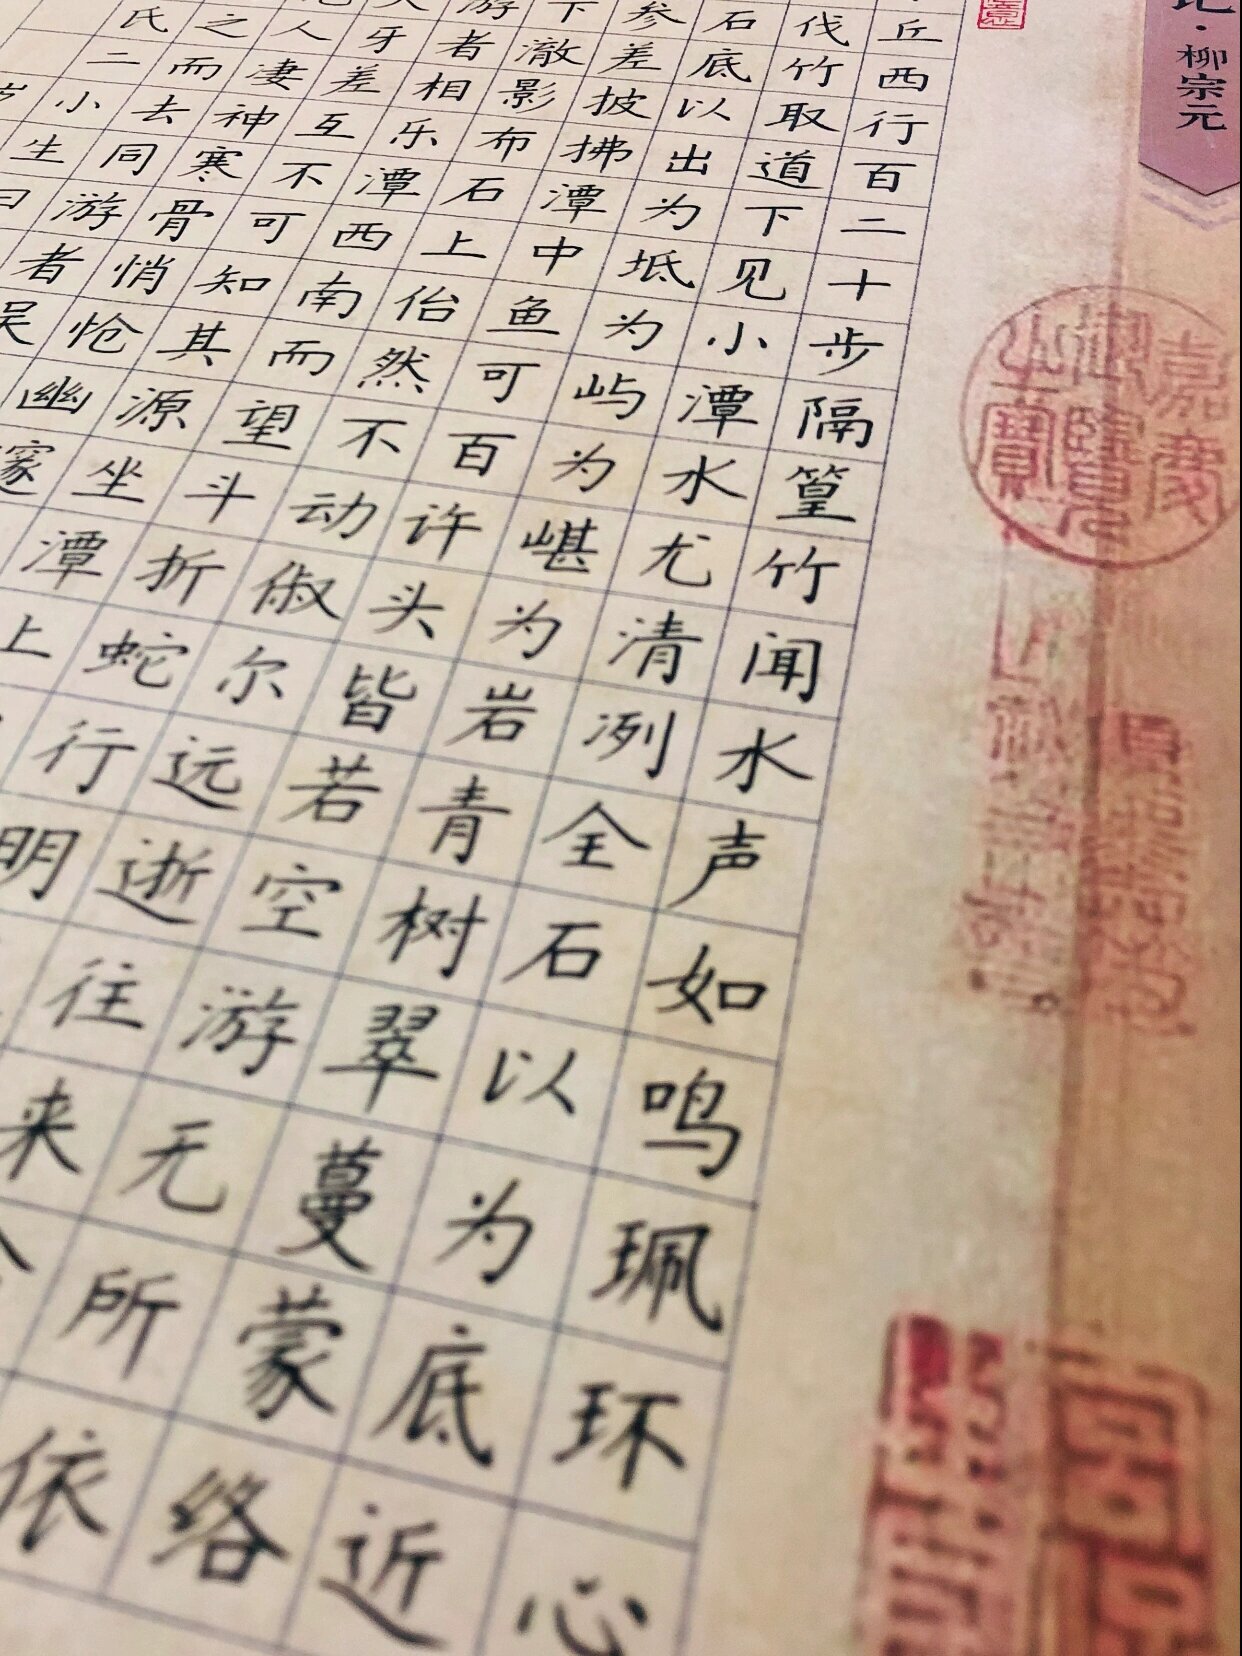 记·柳宗元
丘西行百二十步隔篁竹闻水声如鸣珮环心
伐竹取道下见小潭水尤清冽全石以为底近
石底以出为坻为屿为嵁为岩青树翠蔓蒙络
参差披拂潭中鱼可百许头皆若空游无所依
下澈影布石上佁然不动俶尔远逝往来
游者相乐潭西南而望斗折蛇行明
牙差互不可知其源坐潭上
人凄神寒骨悄怆幽邃
之而去同游者吴
氏二小生曰